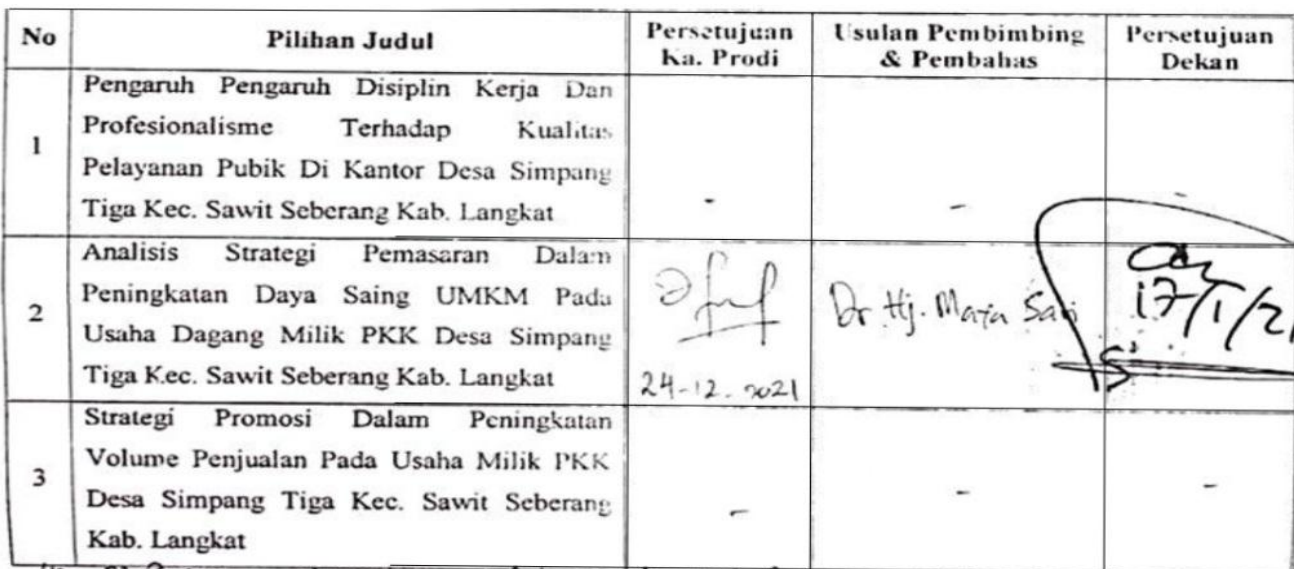 No
Pilihan Judul
Persetujuan
Ka. Prodi
Usulan Pembimbing
& Pembahas
Persetujuan
Dekan
1
Pengaruh Pengaruh Disiplin Kerja Dan
Profesionalisme Terhadap Kualitas
Pelayanan Pubik Di Kantor Desa Simpang
Tiga Kec. Sawit Seberang Kab. Langkat
-
-
-
2
Analisis Strategi Pemasaran Dalam
Peningkatan Daya Saing UMKM Pada
Usaha Dagang Milik PKK Desa Simpang
Tiga Kec. Sawit Seberang Kab. Langkat
24-12-2021
Dr Hj. Maya Sari
17/1/2
3
Strategi Promosi Dalam Peningkatan
Volume Penjualan Pada Usaha Milik PKK
Desa Simpang Tiga Kec. Sawit Seberang
Kab. Langkat
-
-
-